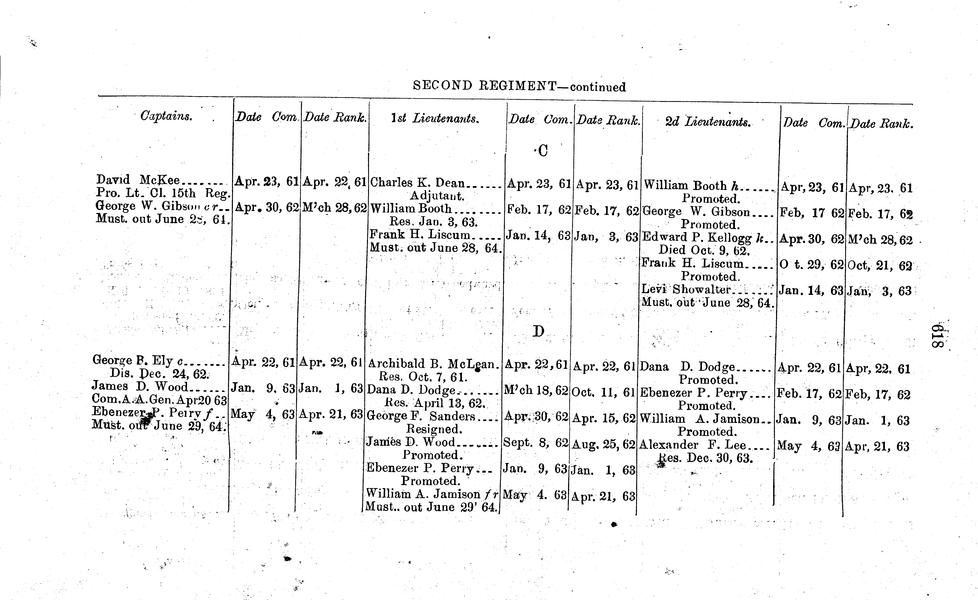 SECOND REGIMENT—continued
Captains. Date Com. Date Rank. 1st Lieutenants. Date Com. Date Rank. 2d Lieutenants. Date Com. Date Rank.
C
David McKee....... Apr. 23, 61 Apr. 22, 61 Charles K. Dean...... Apr. 23, 61 Apr. 23, 61 William Booth h...... Apr, 23, 61 Apr, 23. 61
Pro. Lt. Cl. 15th Reg. Adjutant. Promoted.
George W. Gibson c r.. Apr. 30, 62 M'ch 28, 62 William Booth........ Feb. 17, 62 Feb. 17, 62 George W. Gibson.... Feb, 17 62 Feb. 17, 62
Must. out June 28, 64. Res. Jan. 3, 63. Promoted.
Frank H. Liscum..... Jan. 14, 63 Jan, 3, 63 Edward P. Kellogg h.. Apr. 30, 62 M'ch 28, 62
Must. out June 28, 64. Died Oct. 9, 62.
Frank H. Liscum..... O t. 29, 62 Oct, 21, 62
Promoted.
Levi Showalter....... Jan. 14, 63 Jan, 3, 63
Must. out June 28, 64.
618
D
George B. Ely c....... Apr. 22, 61 Apr. 22, 61 Archibald B. McLean. Apr. 22, 61 Apr. 22, 61 Dana D. Dodge...... Apr. 22, 61 Apr, 22, 61
Dis. Dec. 24, 62. Res. Oct. 7, 61. Promoted.
James D. Wood...... Jan. 9, 63 Jan. 1, 63 Dana D. Dodge....... M'ch 18, 62 Oct. 11, 61 Ebenezer P. Perry.... Feb. 17, 62 Feb, 17, 62
Com. A. A. Gen. Apr 20 63 Res. April 13, 62. Promoted.
Ebenezer P. Perry f.. May 4, 63 Apr. 21, 63 George F. Sanders.... Apr. 30, 62 Apr. 15, 62 William A. Jamison.. Jan. 9, 63 Jan. 1, 63
Must. out June 29, 64. Resigned. Promoted.
James D. Wood....... Sept. 8, 62 Aug. 25, 62 Alexander F. Lee.... May 4, 63 Apr, 21, 63
Promoted. Res. Dec. 30, 63.
Ebenezer P. Perry... Jan. 9, 63 Jan. 1, 63
Promoted.
William A. Jamison f r May 4. 63 Apr. 21, 63
Must.. out June 29' 64.